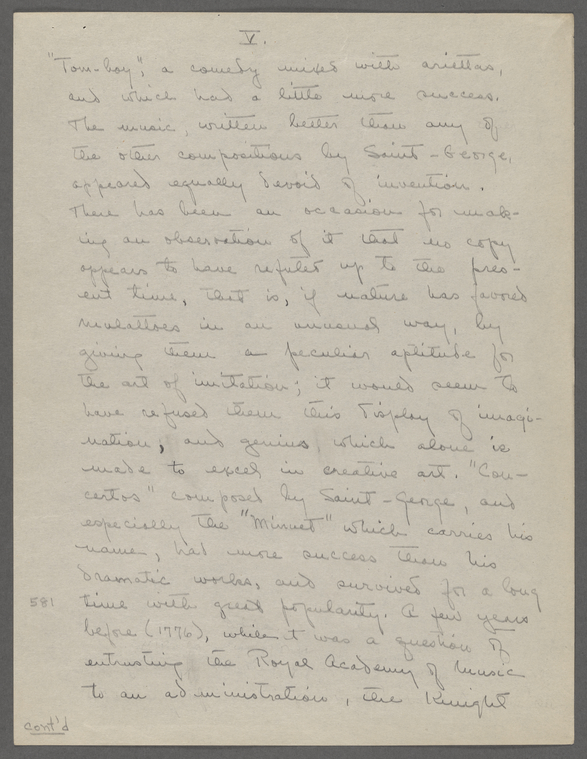 V.
"Tom-boy", a comedy mixed with ariettas,
and which had a little more success.
The music, written better than any of
the other compositions by Saint-George,
appeared equally devoid of invention.
There has been an occasion for mak-
ing an observation of it that no copy
appears to have refuted up to the pres-
ent time, that is, if nature has favored
mulattoes in an unusual way, by
giving them a peculiar aptitude for
the art of imitation; it would seem to
have refused them this display of imagi-
nation, and genius which alone is
made to excel in creative art. "Con-
certos" composed by Saint-George, and
especially the "Minuet" which carries his
name, had more success than his
dramatic works, and survived for a long
581 time with great popularity. A few years
before (1776), while it was a question of
entrusting the Royal Academy of Music
to an administration, the Knight
cont'd